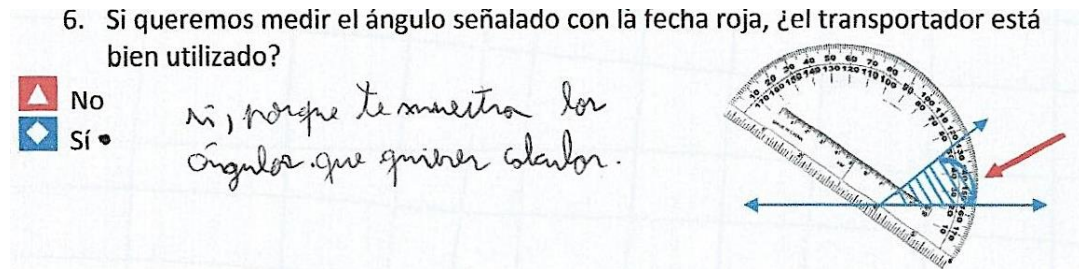 6. Si queremos medir el ángulo señalado con la fecha roja, ¿el transportador está
bien utilizado?
No
Sí
si, porque te muestra los
ángulos que quieres calcular.